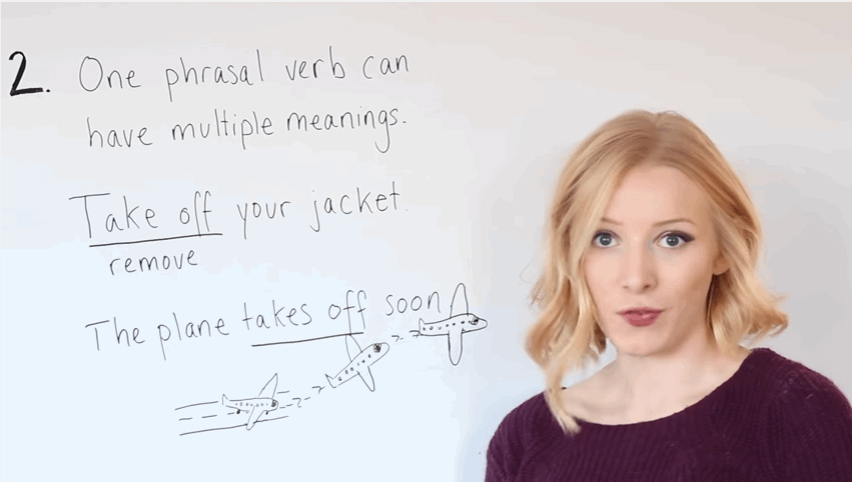 2. One phrasal verb can
have multiple meanings.
Take off your jacket.
remove
The plane takes off soon